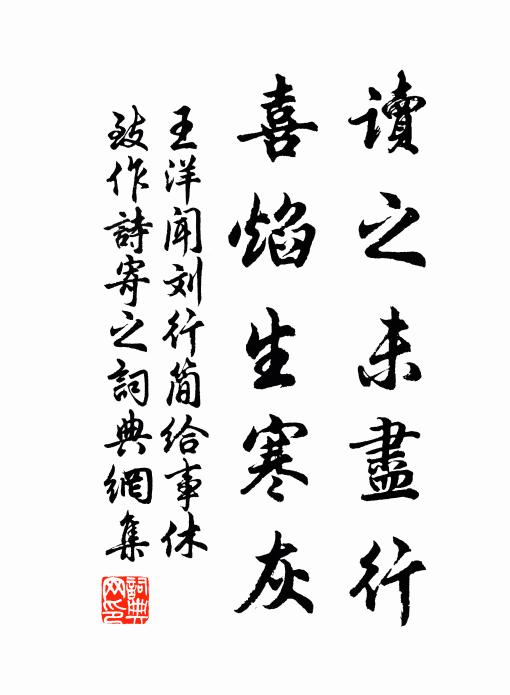 讀之未盡行
喜焰生寒灰
王洋闻刘行简给事休
致作詩寄之詞典網集
詞典网印